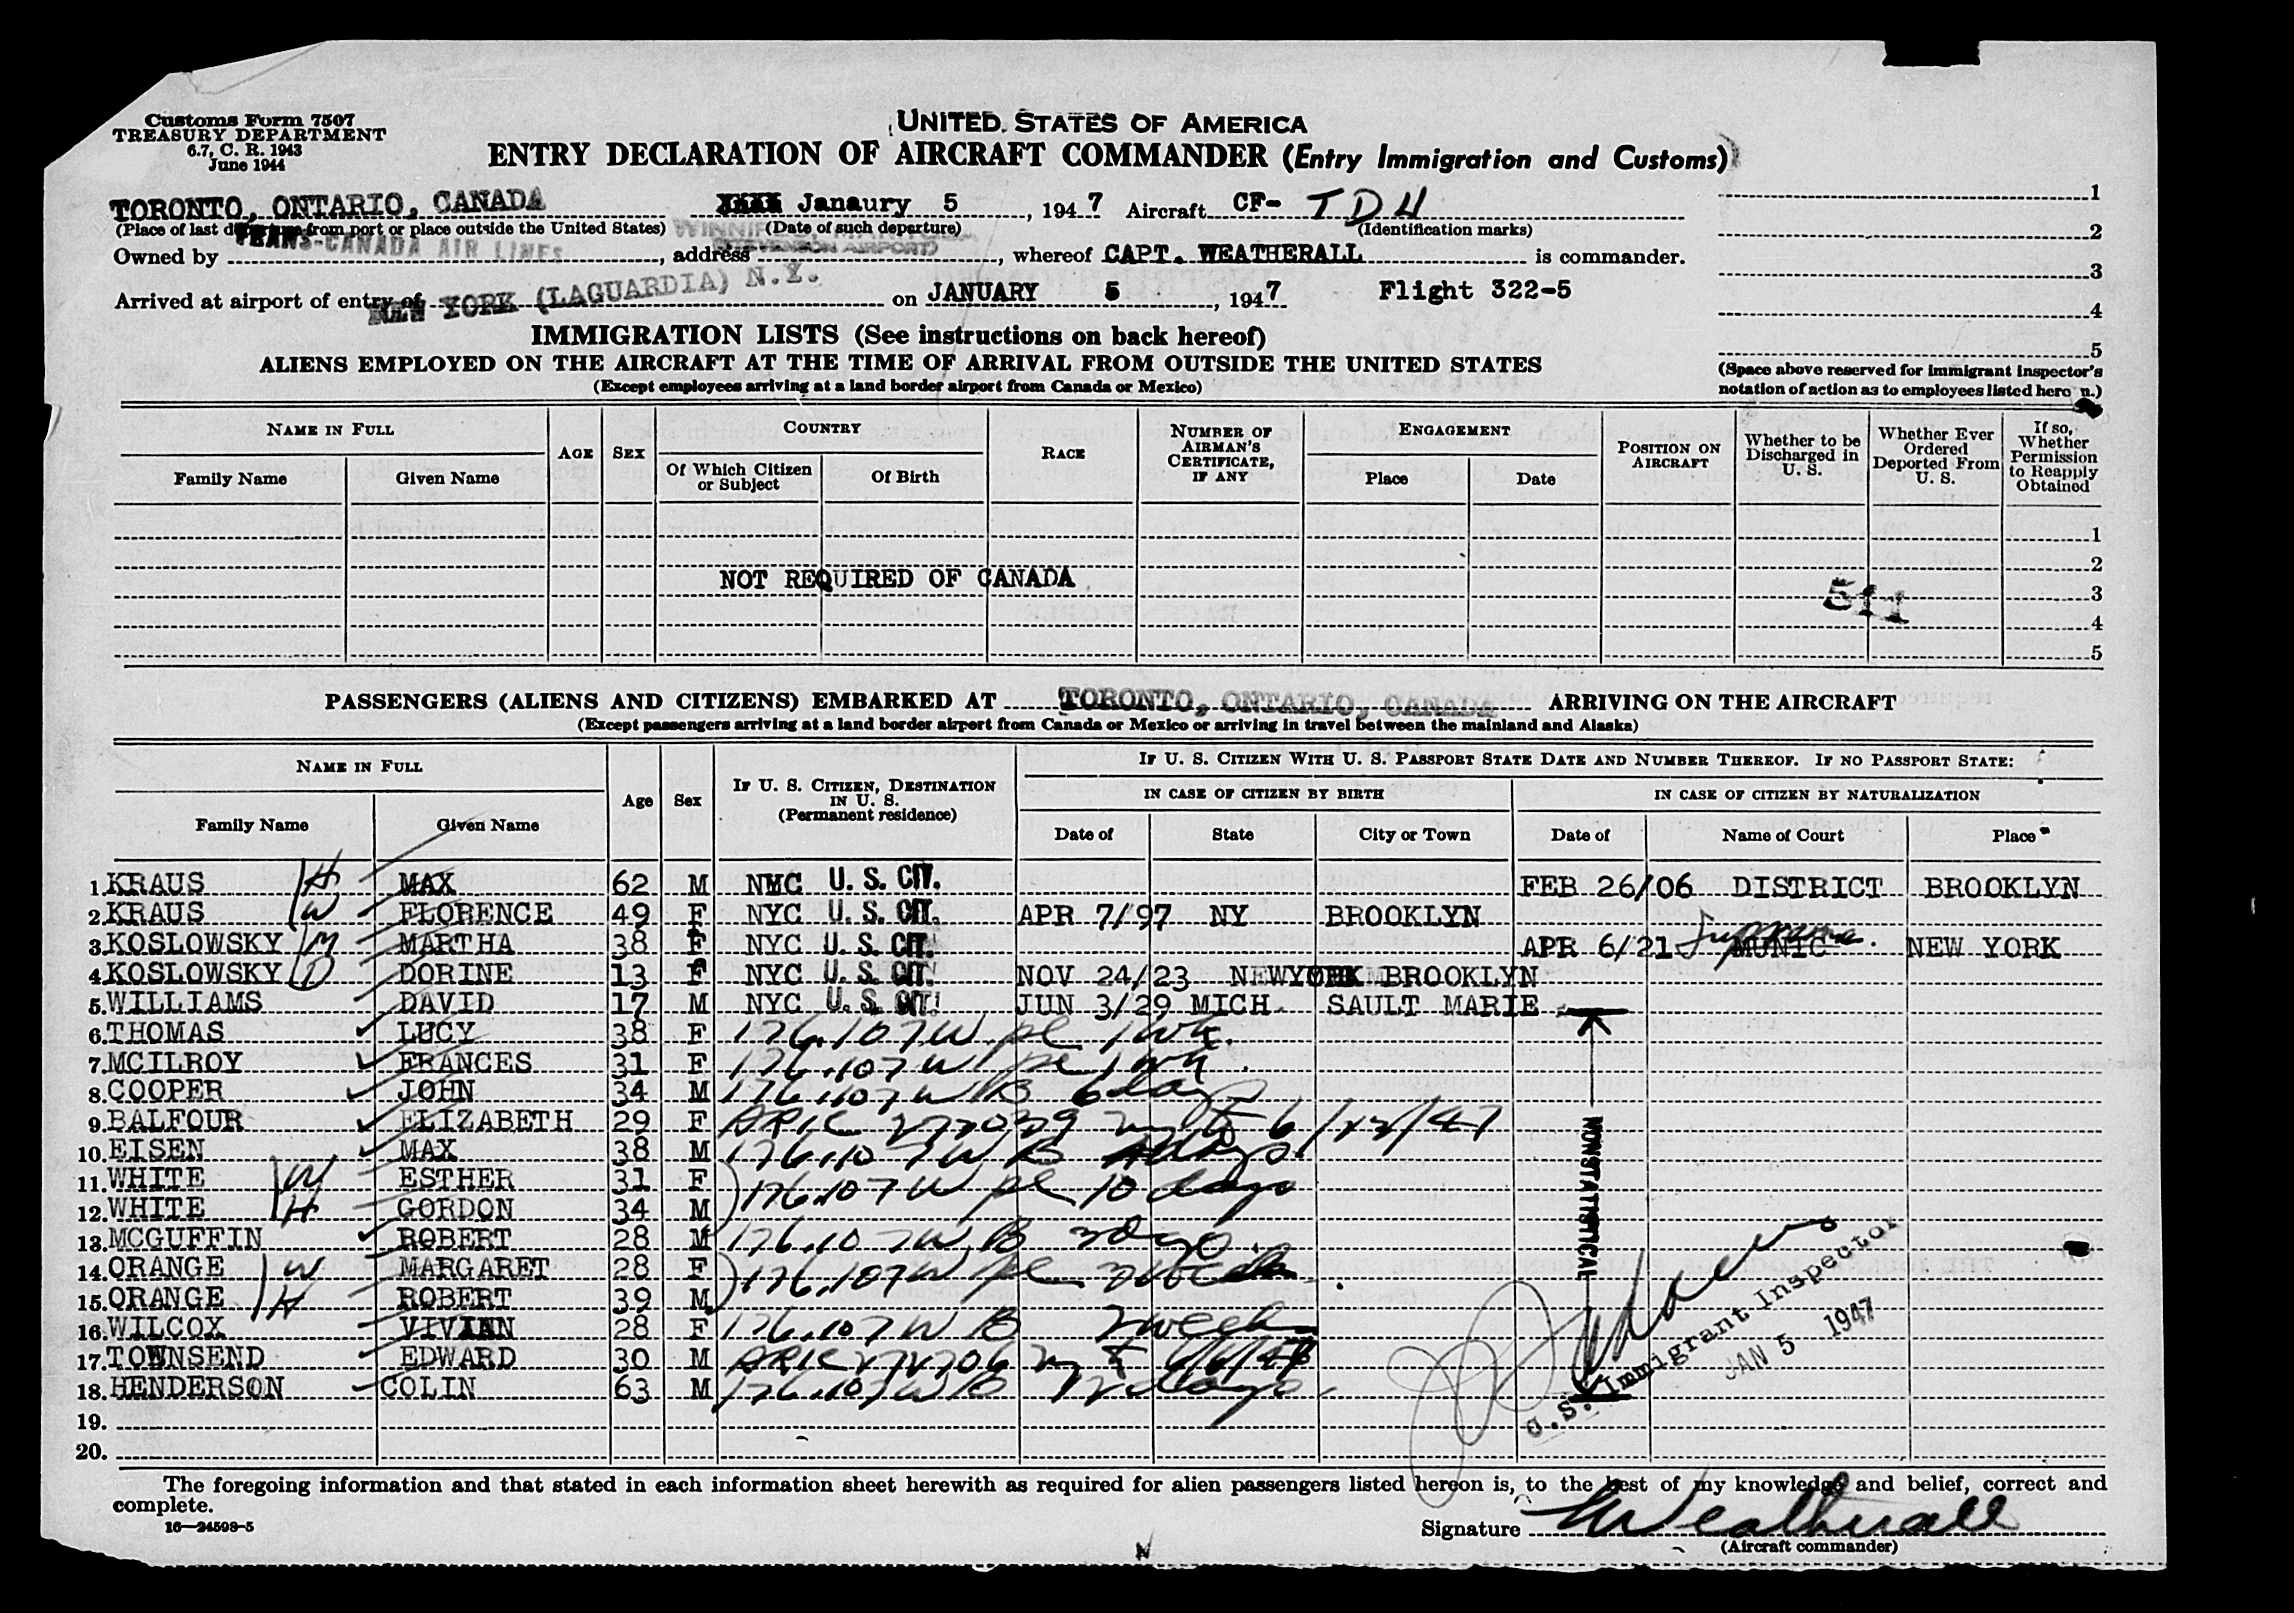 Customs Form 7507
TREASURY DEPARTMENT
6.7, C. R. 1943
June 1944
UNITED STATES OF AMERICA
ENTRY DECLARATION OF AIRCRAFT COMMANDER (Entry Immigration and Customs)
TORONTO, ONTARIO, CANADA Janaury 5, 1947 Aircraft CF- TDH
(Place of last departure from port or place outside the United States) (Date of such departure) (Identification marks)
Owned by TRANS-CANADA AIR LINES, address WINNIPEG, MANITOBA (STEVENSON AIRPORT), whereof CAPT. WEATHERALL is commander.
Arrived at airport of entry of NEW YORK (LAGUARDIA) N.Y. on JANUARY 5, 1947 Flight 322-5
1
2
3
4
5
(Space above reserved for immigrant inspector's notation of action as to employees listed hereon.)
IMMIGRATION LISTS (See instructions on back hereof)
ALIENS EMPLOYED ON THE AIRCRAFT AT THE TIME OF ARRIVAL FROM OUTSIDE THE UNITED STATES
(Except employees arriving at a land border airport from Canada or Mexico)
NAME IN FULL AGE SEX COUNTRY RACE NUMBER OF AIRMAN'S CERTIFICATE, IF ANY ENGAGEMENT POSITION ON AIRCRAFT Whether to be Discharged in U. S. Whether Ever Ordered Deported From U. S. If so, Whether Permission to Reapply Obtained
Family Name Given Name Of Which Citizen or Subject Of Birth Place Date
1
2
NOT REQUIRED OF CANADA
511
3
4
5
PASSENGERS (ALIENS AND CITIZENS) EMBARKED AT TORONTO, ONTARIO, CANADA ARRIVING ON THE AIRCRAFT
(Except passengers arriving at a land border airport from Canada or Mexico or arriving in travel between the mainland and Alaska)
NAME IN FULL Age Sex IF U. S. CITIZEN, DESTINATION IN U. S. (Permanent residence) IF U. S. CITIZEN WITH U. S. PASSPORT STATE DATE AND NUMBER THEREOF. IF NO PASSPORT STATE:
IN CASE OF CITIZEN BY BIRTH IN CASE OF CITIZEN BY NATURALIZATION
Family Name Given Name Date of State City or Town Date of Name of Court Place
1. KRAUS H MAX 62 M NYC U. S. CIT. FEB 26/06 DISTRICT BROOKLYN
2. KRAUS W FLORENCE 49 F NYC U. S. CIT. APR 7/97 NY BROOKLYN
3. KOSLOWSKY M MARTHA 38 F NYC U. S. CIT. APR 6/21 MUNIC Supreme. NEW YORK
4. KOSLOWSKY D DORINE 13 F NYC U. S. CIT. NOV 24/23 NEWYORK BROOKLYN
5. WILLIAMS DAVID 17 M NYC U. S. CIT. JUN 3/29 MICH. SAULT MARIE
6. THOMAS LUCY 38 F 176.107W pl 1 wk.
7. MCILROY FRANCES 31 F 176.107W pl 1 wk.
8. COOPER JOHN 34 M 176.107W B 6 days
9. BALFOUR ELIZABETH 29 F 6/12/47
10. EISEN MAX 38 M 176.107W B days.
11. WHITE W ESTHER 31 F 176.107W pl 10 days
12. WHITE H GORDON 34 M
13. MCGUFFIN ROBERT 28 M 176.107W B
14. ORANGE W MARGARET 28 F 176.107W pl
15. ORANGE H ROBERT 39 M
16. WILCOX VIVIAN 28 F 176.107W B 2 weeks
17. TOWNSEND EDWARD 30 M
18. HENDERSON COLIN 63 M 176.107W B days
19.
20.
NONSTATISTICAL
U.S. Immigrant Inspector
JAN 5 1947
The foregoing information and that stated in each information sheet herewith as required for alien passengers listed hereon is, to the best of my knowledge and belief, correct and complete.
16—24598-5
Signature Weatherall
(Aircraft commander)